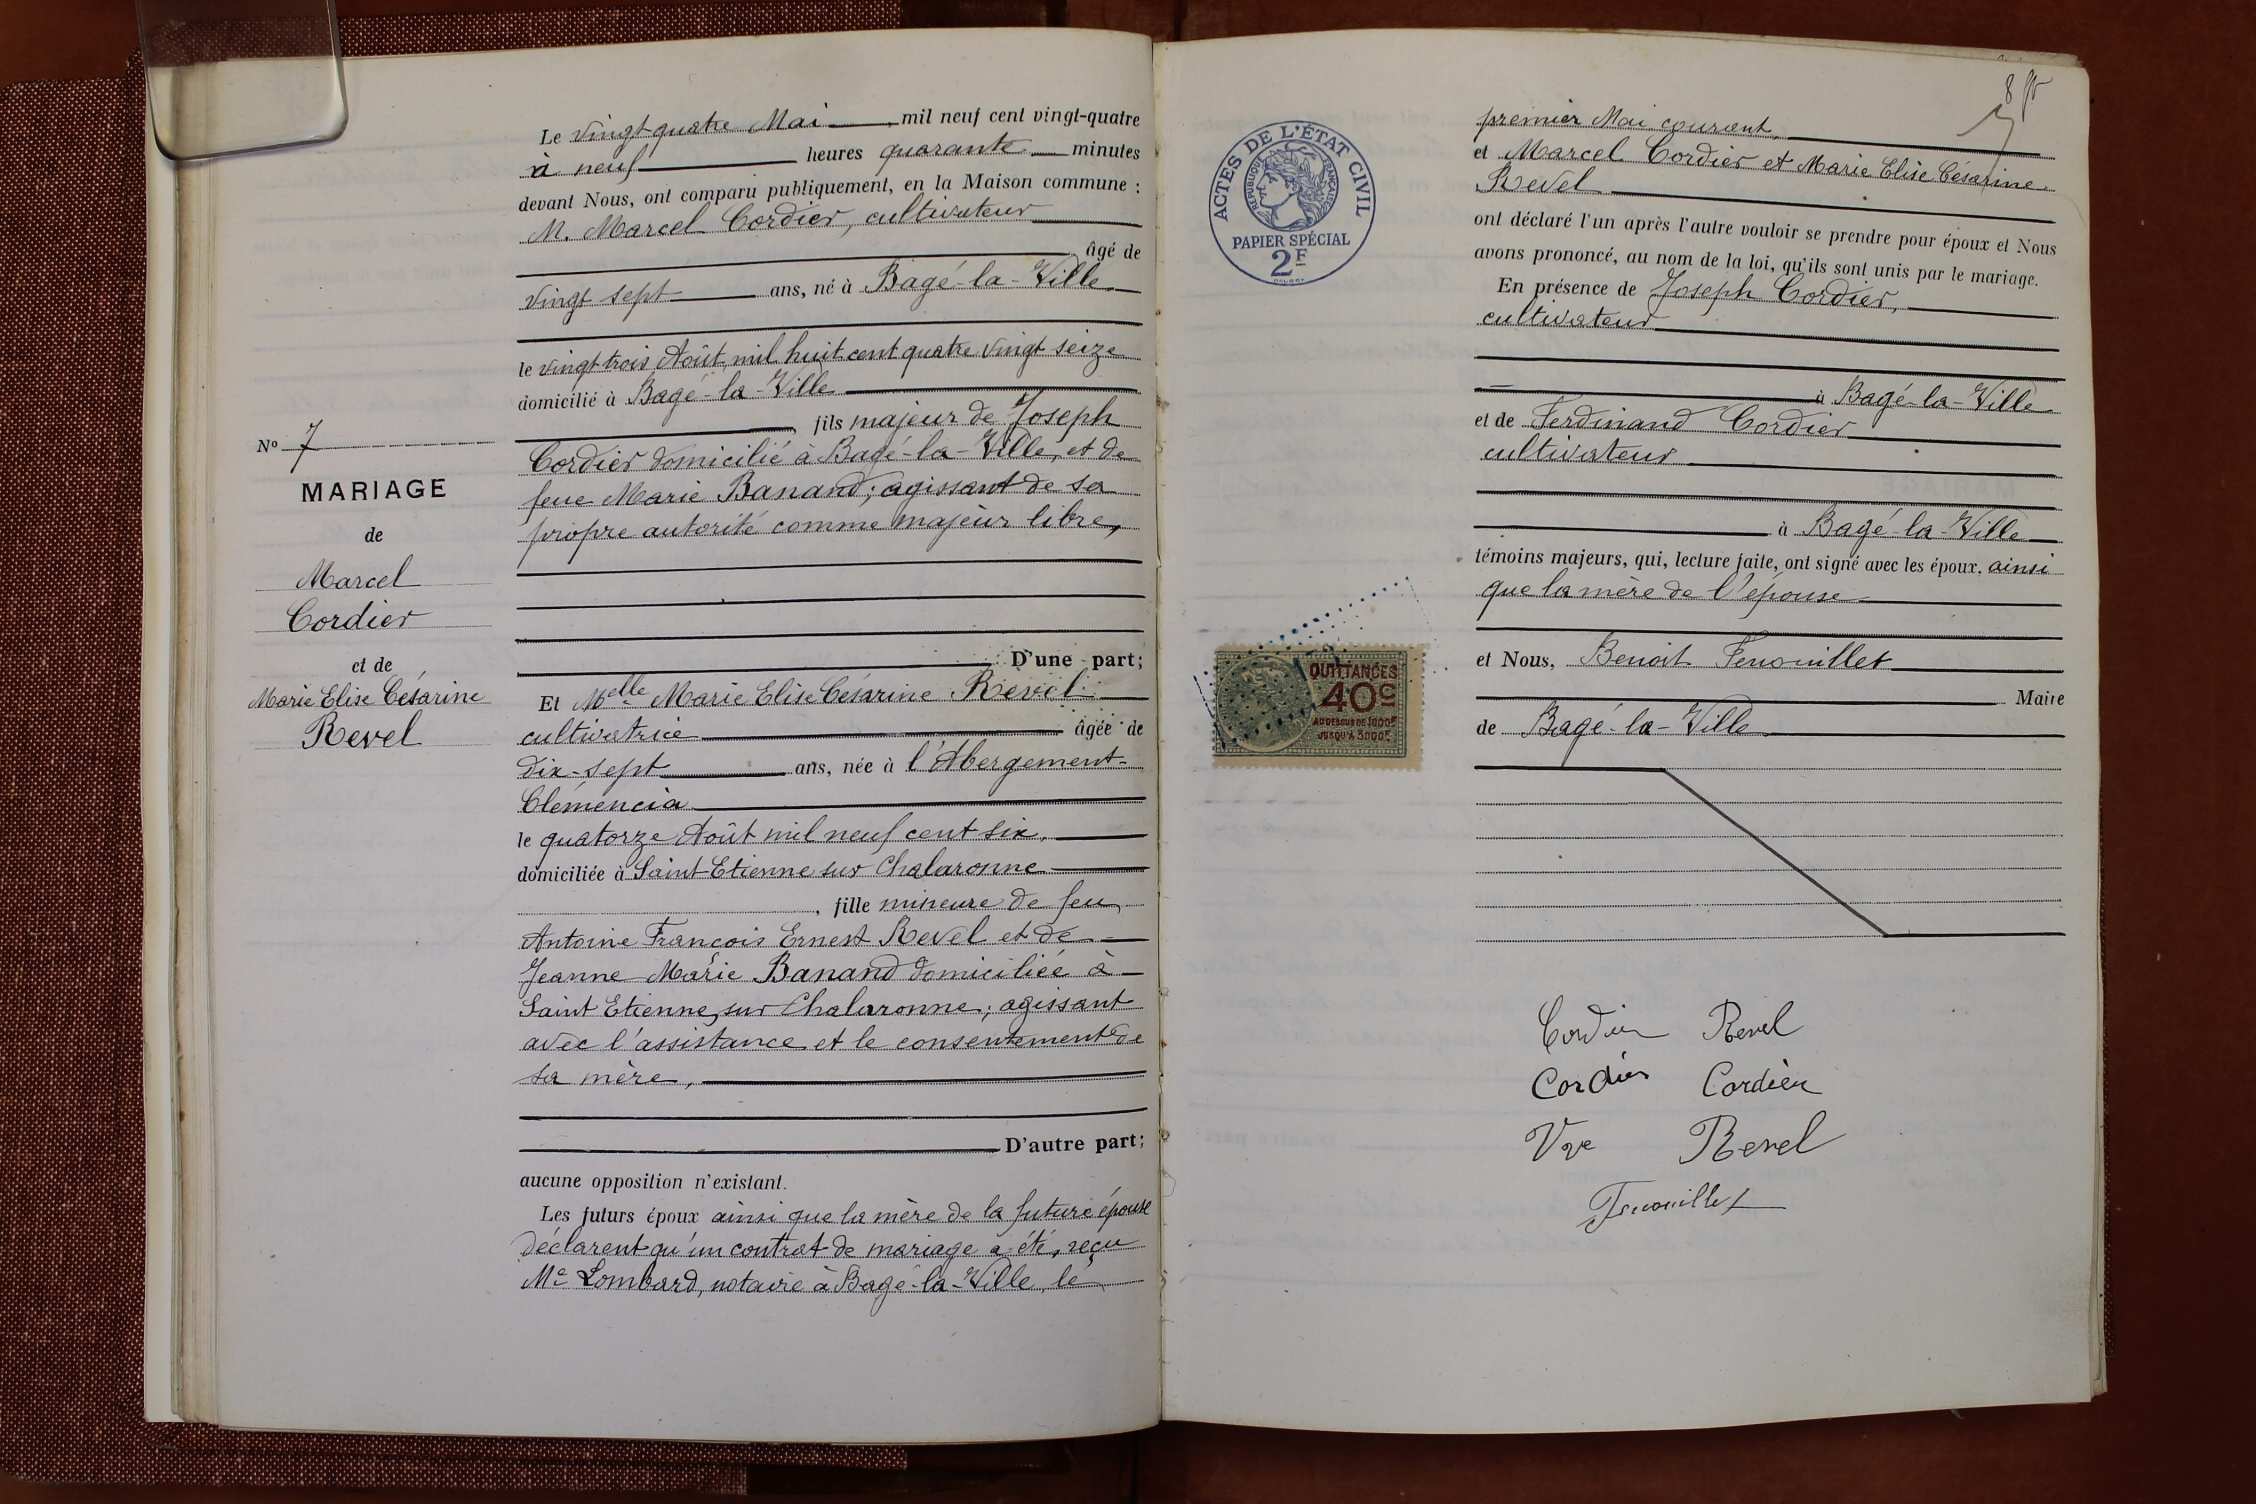 Le vingt-quatre Mai mil neuf cent vingt-quatre
à neuf heures quarante minutes
devant Nous, ont comparu publiquement, en la Maison commune :
M. Marcel Cordier, cultivateur
âgé de
vingt sept ans, né à Bagé-la-Ville
le vingt trois Août mil huit cent quatre vingt seize
domicilié à Bagé-la-Ville
, fils majeur de Joseph
Cordier domicilié à Bagé-la-Ville, et de
feue Marie Banand; agissant de sa
propre autorité comme majeur libre,
D'une part;
Et Melle Marie Elise Césarine Revel
cultivatrice âgée de
dix-sept ans, née à l'Abergement-
Clémencia
le quatorze Août mil neuf cent six,
domiciliée à Saint Etienne sur Chalaronne
, fille mineure de feu
Antoine François Ernest Revel et de
Jeanne Marie Banand domiciliée à
Saint Etienne sur Chalaronne; agissant
avec l'assistance et le consentement de
sa mère,
D'autre part;
aucune opposition n'existant.
Les futurs époux ainsi que la mère de la future épouse
déclarent qu'un contrat de mariage a été reçu
Me Lombard, notaire à Bagé-la-Ville, le
No 7
MARIAGE
de
Marcel
Cordier
et de
Marie Elise Césarine
Revel
8
premier Mai courant,
et Marcel Cordier et Marie Elise Césarine
Revel
ont déclaré l'un après l'autre vouloir se prendre pour époux et Nous
avons prononcé, au nom de la loi, qu'ils sont unis par le mariage.
En présence de Joseph Cordier,
cultivateur
à Bagé-la-Ville
et de Ferdinand Cordier
cultivateur
à Bagé la-Ville
témoins majeurs, qui, lecture faite, ont signé avec les époux, ainsi
que la mère de l'épouse
et Nous, Benoit Fenouillet
Maire
de Bagé-la-Ville
ACTES DE L'ÉTAT CIVIL
RÉPUBLIQUE FRANÇAISE
PAPIER SPÉCIAL
2F
QUITTANCES
40c
AU DESSUS DE 1000F
JUSQU'À 3000F
Cordier Revel
Cordier Cordier
Vve Revel
Fenouillet